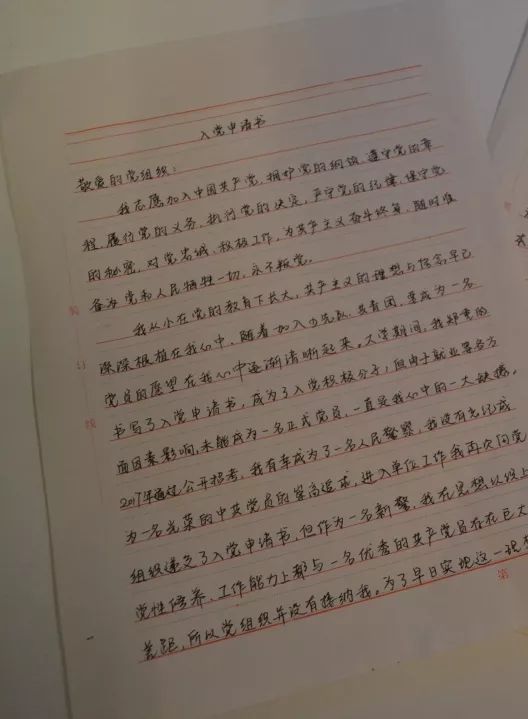 入党申请书
敬爱的党组织：
我志愿加入中国共产党，拥护党的纲领，遵守党的章
程，履行党的义务，执行党的决定，严守党的纪律，保守党
的秘密，对党忠诚，积极工作，为共产主义奋斗终身，随时准
备为党和人民牺牲一切，永不叛党。
我从小在党的教育下长大，共产主义的理想与信念早已
深深根植在我心中，随着加入少先队、共青团，要成为一名
党员的愿望在我心中逐渐清晰起来。大学期间，我郑重的
书写了入党申请书，成为了入党积极分子，但由于就业等各方
面因素影响，未能成为一名正式党员，一直是我心中的一大缺憾。
2017年通过公开招考，我有幸成为了一名人民警察，我没有忘记成
为一名光荣的中共党员的崇高追求，进入单位工作我再次向党
组织递交了入党申请书，但作为一名新警，我在思想认识上
党性修养、工作能力上都与一名优秀的共产党员存在巨大
差距，所以党组织并没有接纳我。为了早日实现这一理
订
第